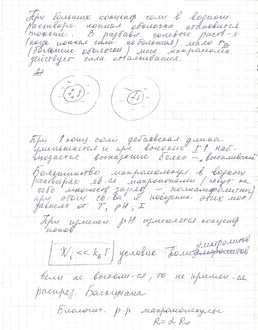 При больших концентр. соли в водном
растворе ионная оболочка становится
тоньше. В разбавл. солевых раств-х
(когда ионная сила небольшая) мало
(большие оболочки) между макромолек.
действует сила отталкивания.
При ↑ конц. соли дебаевская длина
уменьшается и при высоких I↑ наб-
людается выпадение белка – „высаливание"
Большинство макромолекул в водных
растворах яв-ся полиионами (несут на
себе множество заряд. – полиамфолиты)
при этом св-ва и поведение этих мол.
зависит от T, pH, I
При изменен. pH изменяется концентр.
ионов
<< k₀T условие
если не выполн-ся, то не примен-ся
распред. Больцмана
Биологич. р-р макромолекулы